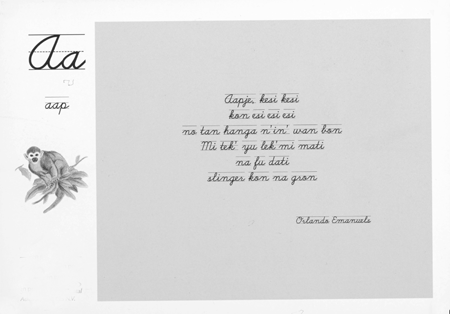 Aa
aap
Aapje, kesi kesi
kon esi esi esi
no tan hanga n'in' wan bon
Mi tek' yu lek' mi mati
na fu dati
slinger kon na gron
Orlando Emanuels